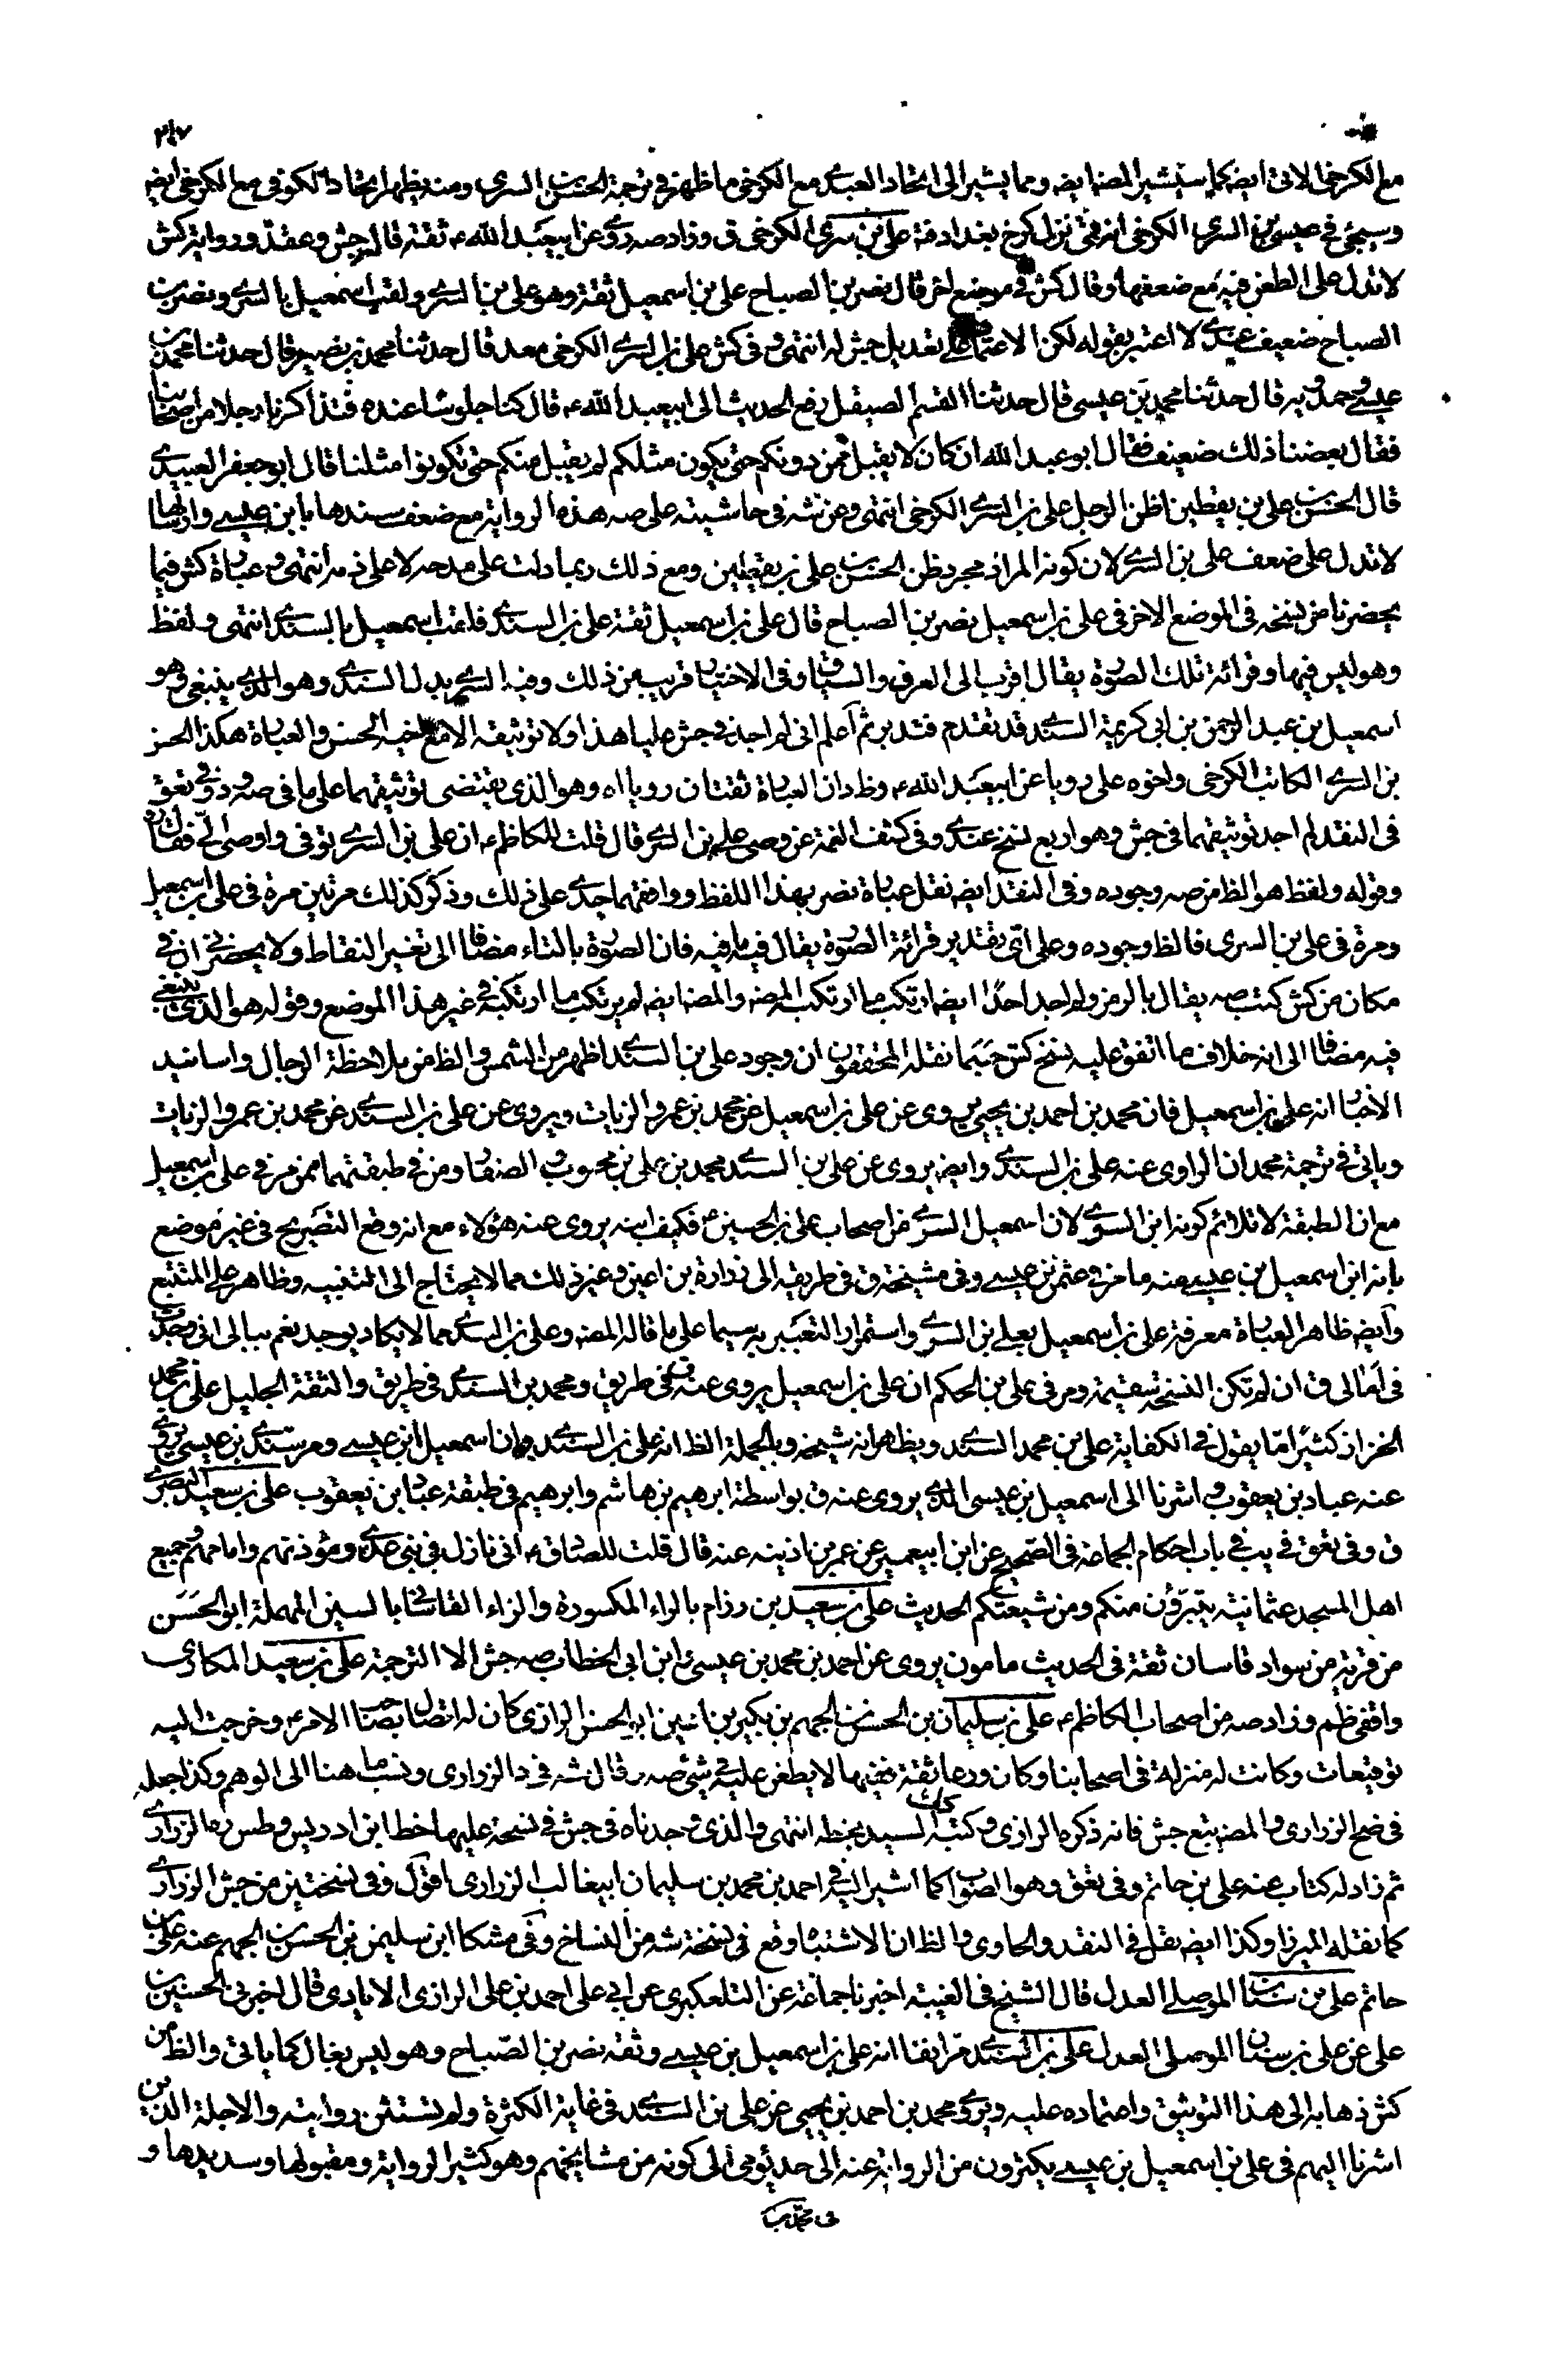 ٢١٧
مع الكرخى الاتى ايضا كما سيشير المصنايضه ومما يشير الى اتحاد العبدى مع الكرخى ما ظهر فى ترجمة الحسن بن السرى ومنه يظهر اتحاد الكوفى مع الكرخى ايضه
وسيجئ فى عيسى بن السرى الكرخى انه قمى نزل كرخ بغداد فته على بن سرى الكرخى ق وزاد صه روى عن ابيعبد الله ء ثقة قاله جش وعقد ورواية كش
لا تدل على الطعن فيه مع ضعفها وقال كش فى موضع اخر قال نصر بن الصباح على بن اسمعيل ثقة وهو على بن السرى ولقب اسمعيل بالسرى ونصر بن
الصباح ضعيف عندى لا اعتبر بقوله لكن الاعتماد على تعديل جش له انتهى وفى كش على بن السرى الكرخى معد قال حدثنا محمد بن نصير قال حدثنا محمد بن
عيسى وحمدويه قال حدثنا محمد بن عيسى قال حدثنا القسم الصيقل رفع الحديث الى ابيعبد الله ء قال كنا جلوسا عنده فتذاكرنا رجلا من اصحابنا
فقال بعضنا ذلك ضعيف فقال ابو عبد الله ان كان لا يقبل ممن دونكم حتى يكون مثلكم لم يقبل منكم حتى تكونوا مثلنا قال ابو جعفر العبيدى
قال الحسن بن على بن يقطين اظن الرجل على بن السرى الكرخى انتهى وعن شه فى حاشيته على صه هذه الرواية مع ضعف سندها بابن عيسى وارسالها
لا تدل على ضعف على بن السرى لان كونه المراد مجرد ظن الحسن بن على بن يقطين ومع ذلك ربما دلت على مدحه لا على ذمه انتهى وعبارة كش فيما
يحضرنا من نسخه فى الموضع الاخر فى على بن اسمعيل نصر بن الصباح قال على بن اسمعيل ثقة على بن السندى فلقب اسمعيل بالسندى انتهى ولفظ
وهو ليس فيها وقرائة تلك الصورة يقال اقرب الى العرف والسياق وفى الاختيار قريب من ذلك وفيه السرى بدل السندى وهو الذى ينبغى وهو
اسمعيل بن عبد الرحمن بن ابى كريمة السندى قد تقدم فتدبر ثم اعلم انى لم اجد فى جش عليا هذا ولا توثيقه الا مع اخيه الحسن والعبارة هكذا الحسن
بن السرى الكاتب الكرخى واخوه على رويا عن ابيعبد الله ء وظ د ان العبارة ثقتان رويا اه وهو الذى يقتضى توثيقهما على ما فى صه ود وفى تعق
فى النقد لم اجد توثيقهما فى جش وهو اربع نسخ عندى وفى كشف الغمة عن وصى على بن السرى قال قلت للكاظم ء ان على بن السرى توفى واوصى الى فقال ره
وقوله ولفظ هو الظ من صه وجوده وفى النقد ايضه نقل عبارة نصر بهذا اللفظ ووافقهما جدى على ذلك وذكر كذلك مرتين مرة فى على بن اسمعيل
ومرة فى على بن السرى فالظ وجوده وعلى اى تقدير قرائة الصورة يقال فيه ما فيه فان الصورة بالتاء مضافا الى تغيير النقاط ولا يحضرنى ان فى
مكان من كش كتب صه يقال بالرمز ولم اجد احدا ايضا ارتكب ما ارتكب المصنه والمصنه ايضه لم يرتكب ما ارتكبه فى غير هذا الموضع وقوله هو الذى ينبغى
فيه مضافا الى انه خلاف ما اتفق عليه نسخ كش حسبما نقله المحققون ان وجود على بن السندى اظهر من الشمس والظ من ملاحظة الرجال واسانيد
الاخبار انه على بن اسمعيل فان محمد بن احمد بن يحيى يروى عن على بن اسمعيل عن محمد بن عمرو الزيات ويروى عن على بن السندى عن محمد بن عمرو الزيات
وياتى فى ترجمة محمد ان الراوى عنه على بن السندى وايضه يروى عن على بن السندى محمد بن على بن محبوب والصفار ومن فى طبقتهما ممن مر فى على بن اسمعيل
مع ان الطبقة لا تلائم كونه ابن السرى لان اسمعيل السرى من اصحاب على بن الحسين ء فكيف ابنه يروى عنه هؤلاء مع انه وقع التصريح فى غير موضع
بانه ابن اسمعيل بن عيسى منه ما مر فى عثمن بن عيسى وفى مشيخة ق فى طريقه الى زرارة بن اعين وغير ذلك مما لا يحتاج الى التنبيه وظاهر على المتتبع
وايضه ظاهر العبارة معرفة على بن اسمعيل بعلى بن السرى واستمرار التعبير به سيما على ما قاله المصنه وعلى بن السرى مما لا يكاد يوجد نعم ببالى انى وجدت
فى امالى ق ان لم تكن النسخة سقيمة ومر فى على بن الحكم ان على بن اسمعيل يروى عنه فى طريق ومحمد بن السندى فى طريق والثقة الجليل على بن محمد
الخزاز كثيرا ما يقول فى الكفاية على بن محمد السندى ويظهر انه شيخه وبالجملة الظ انه على بن السندى وان اسمعيل ابن عيسى ومر سندى بن عيسى يروى
عنه عباد بن يعقوب واشرنا الى اسمعيل بن عيسى الذى يروى عنه ق بواسطة ابرهيم بن هاشم وابرهيم فى طبقة عباد بن يعقوب على بن سعيد البصرى
ق وفى تعق فى يب فى باب احكام الجماعة فى الصحيح عن ابن ابيعمير عن عمر بن اذينه عنه قال قلت للصادق ء انى نازل فى بنى عدى ومؤذنهم وامامهم وجميع
اهل المسجد عثمانية يتبرؤن منكم ومن شيعتكم الحديث على بن سعيد بن رزام بالراء المكسورة والزاء القاسانى بالسين المهملة ابو الحسن
من قرية من سواد قاسان ثقة فى الحديث مامون يروى عن احمد بن محمد بن عيسى وابن ابى الخطاب صه جش الا الترجمة على بن سعيد المكارى
واقفى ظم وزاد صه من اصحاب الكاظم ء على بن سليمان بن الحسن بن الجهم بن بكير بن اعين ابو الحسن الرازى كان له اتصال بصاحب الامر ء وخرجت اليه
توقيعات وكانت له منزلة فى اصحابنا وكان ورعا ثقة فقيها لا يطعن عليه فى شئ صه وقال شه فى د الزرارى ونسب ما هنا الى الوهم وكذا جعله
فى ضح الزرارى والمصنه يتبع جش فانه ذكره الرازى وكتبه السيد بخطه انتهى والذى وجدناه فى جش فى نسخة عليها خط ابن ادريس وطس رهما الزرارى
ثم زاد له كتاب عنه على بن حاتم وفى تعق وهو الصواب كما اشير اليه فى احمد بن محمد بن سليمان ابيغالب الزرارى اقول وفى نسختين من جش الزرارى
كما نقله الميرزا وكذا ايضه نقل فى النقد والحاوى والظ ان الاشتباه وقع فى نسخة شه من النساخ وفى مشكا ابن سليمن بن الحسن بن الجهم عنه على بن
حاتم على بن سنان الموصلى العدل قال الشيخ فى الغيبة اخبرنا جماعة عن التلعكبرى عن ابى على احمد بن على الرازى الايادى قال اخبرنى الحسين بن
على عن على بن سنان الموصلى العدل على بن السندى مر انفا انه على بن اسمعيل بن عيسى وثقه نصر بن الصباح وهو ليس بغال كما ياتى والظ من
كش ذهابه الى هذا التوثيق واعتماده عليه ويروى محمد بن احمد بن يحيى عن على بن السندى فى غاية الكثرة ولم تستثن روايته والاجلة الذين
اشرنا اليهم فى على بن اسمعيل بن عيسى يكثرون من الرواية عنه الى حد يؤمى الى كونه من مشايخهم وهو كثير الرواية ومقبولها وسديدها و